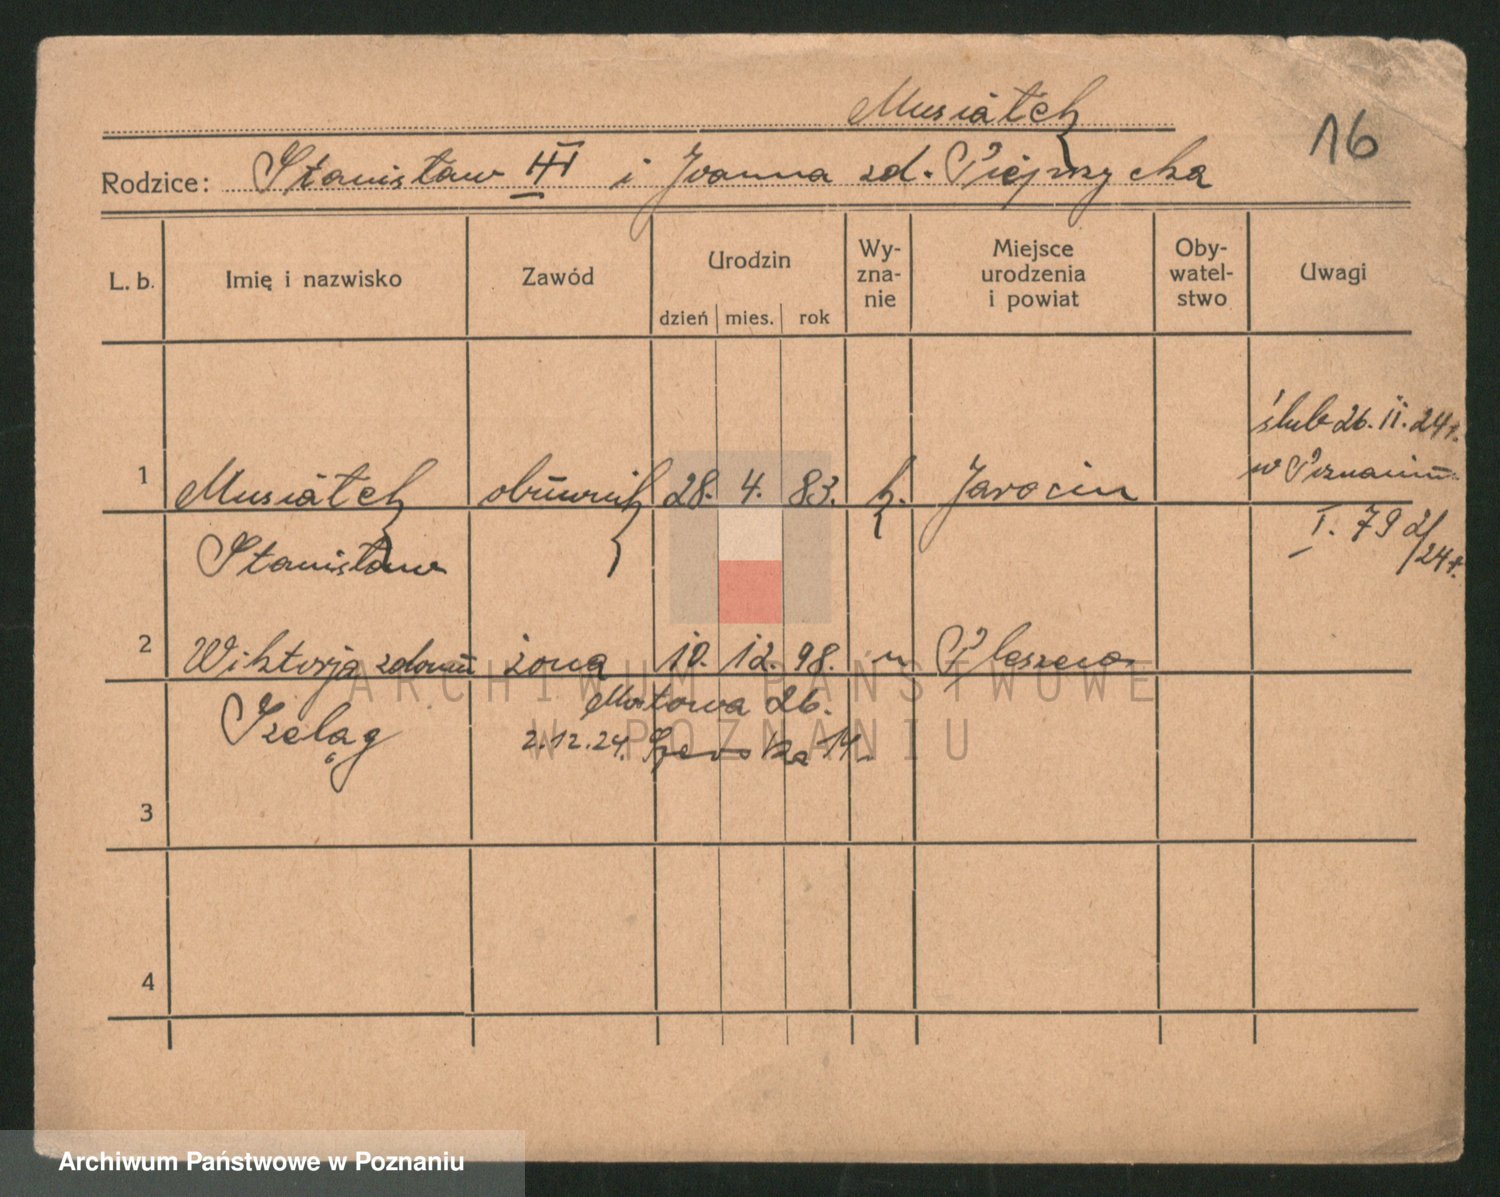 Musiałek
16
Rodzice: Stanisław III i Joanna zd.
L. b. Imię i nazwisko Zawód Urodzin Wy-zna-nie Miejsce urodzenia i powiat Oby-watel-stwo Uwagi
dzień mies. rok
ślub 26. II. 24 r.
w Poznaniu
1 Musiałek obuwnik 28. 4. 83. k. Jarocin
I. 79 2/24 r.
Stanisław
2 Wiktorja żona 10. 12. 98. " Pleszew
Szeląg Mostowa 26.
2.12.24. Szewska 14.
3
4
ARCHIWUM PAŃSTWOWE
W POZNANIU
Archiwum Państwowe w Poznaniu